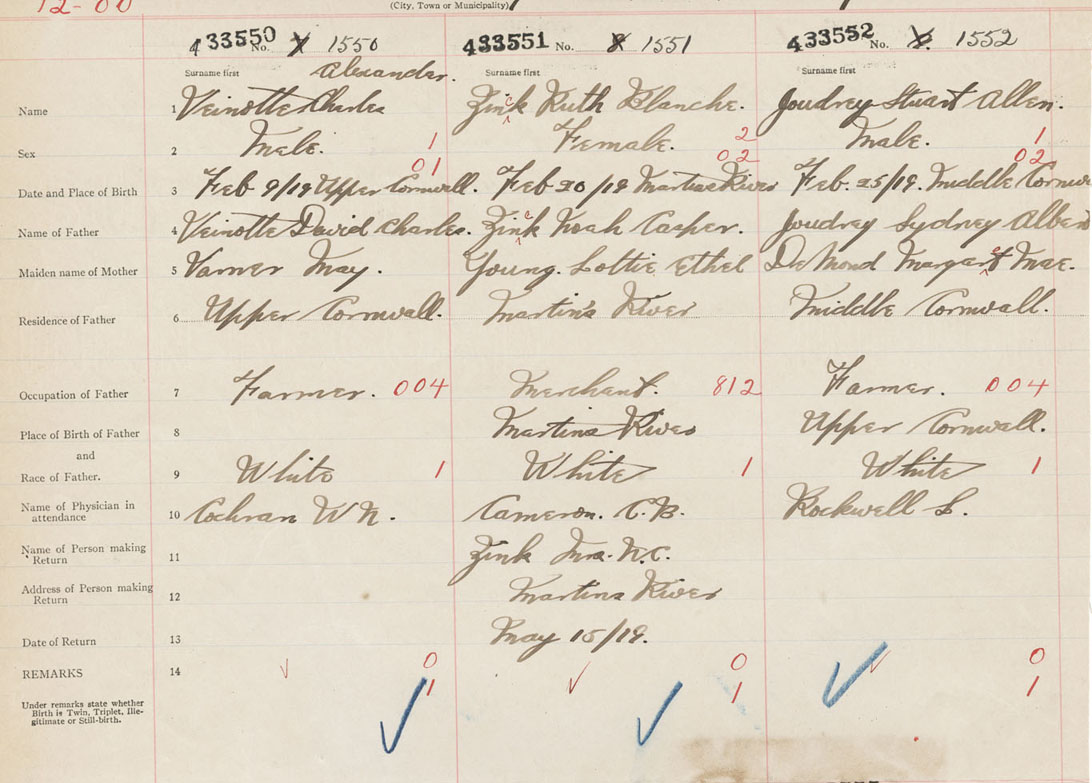 12-00 (City, Town or Municipality)
433550 No. 1550 433551 No. 8 1551 433552 No. 1552
Surname first Alexander. Surname first Surname first
Name 1 Veinotte Charles Zinck Ruth Blanche. Joudrey Stuart Allen.
Sex 2 Male. 1 Female. 2 Male. 1
01 02 02
Date and Place of Birth 3 Feb 9/19 Upper Cornwall. Feb 20/19 Martins River Feb. 25/19. Middle Cornwa
Name of Father 4 Veinotte David Charles. Zinck Noah Casper. Joudrey Sydney Alben
Maiden name of Mother 5 Varner May. Young. Lottie Ethel DeMond Margaret Mae.
Residence of Father 6 Upper Cornwall. Martin's River Middle Cornwall.
Occupation of Father 7 Farmer. 004 Merchant. 812 Farmer. 004
Place of Birth of Father 8 Martins River Upper Cornwall.
and
Race of Father. 9 White 1 White 1 White 1
Name of Physician in attendance 10 Cochran W N. Cameron. C.B. Rockwell L.
Name of Person making Return 11 Zink Mrs. N.C.
Address of Person making Return 12 Martins River
Date of Return 13 May 15/19.
REMARKS 14 0 0 0
1 1 1
Under remarks state whether
Birth is Twin, Triplet, Ille-
gitimate or Still-birth.